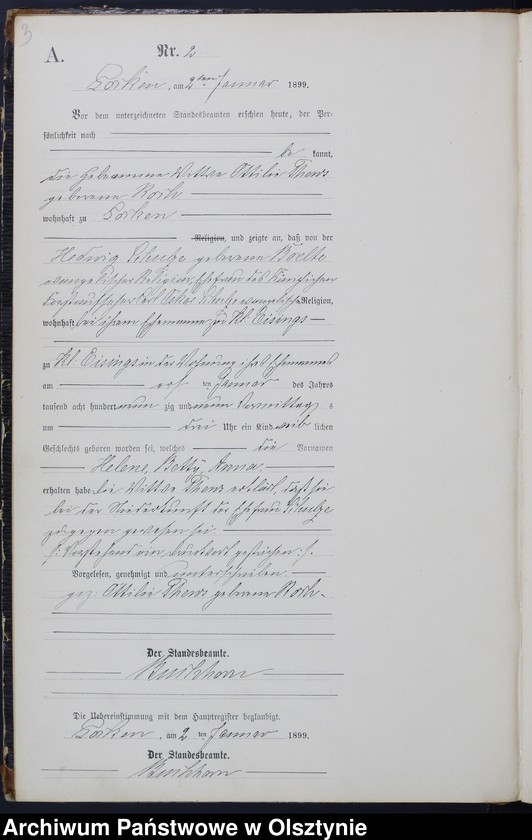 3
A.
Nr. 2
Losken, am 2ten Januar 1899.
Vor dem unterzeichneten Standesbeamten erschien heute, der Per-
sönlichkeit nach
be kannt,
die Hebamme Wittwe Ottilie
geborene
wohnhaft zu Losken
Religion, und zeigte an, daß von der
Hedwig Schulze geborene Boelte
evangelischer Religion, Ehefrau des Königlichen
Oskar Schulze evangelischer Religion,
wohnhaft bei ihrem Ehemanne zu Kl. Eisings
zu Kl. Eisings in der Wohnung ihres Ehemannes
am ten Januar des Jahres
tausend acht hundert neun zig und neun Vormittag s
um drei Uhr ein Kind weib lichen
Geschlechts geboren worden sei, welches die Vornamen
Helene, Betty, Anna
erhalten habe. Die Wittwe erklärt, daß sie
bei der Niederkunft der Ehefrau Schulze
zugegen gewesen sei.
Vorstehend ein Druckwort gestrichen
Vorgelesen, genehmigt und unterschrieben
gez. Ottilie geborene
Der Standesbeamte.
Die Uebereinstimmung mit dem Hauptregister beglaubigt.
Losken, am 2 ten Januar 1899.
Der Standesbeamte.
Archiwum Państwowe w Olsztynie